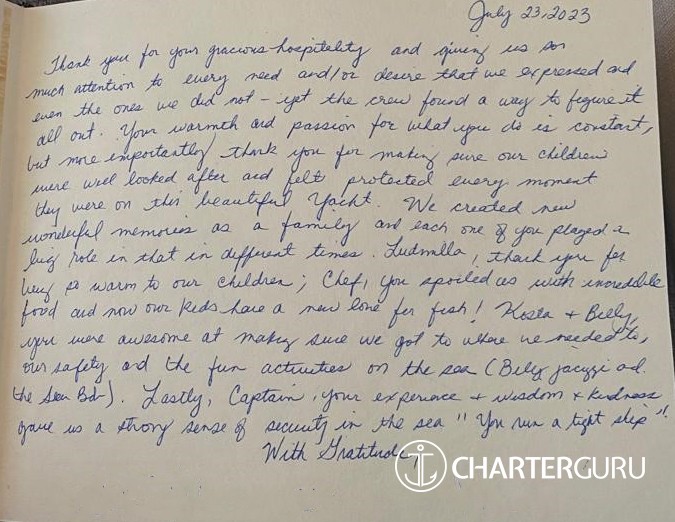 July 23, 2023
Thank you for your gracious hospitality and giving us so
much attention to every need and/or desire that we expressed and
even the ones we did not - yet the crew found a way to figure it
all out. Your warmth and passion for what you do is constant,
but more importantly thank you for making sure our children
were well looked after and felt protected every moment
they were on this beautiful Yacht. We created new
wonderful memories as a family and each one of you played a
big role in that in different times. Ludmilla, thank you for
being so warm to our children; Chef, you spoiled us with incredible
food and now our kids have a new love for fish! Kosta + Billy,
you were awesome at making sure we got to where we needed to,
our safety and the fun activities on the sea (Billy jacuzzi and
the Sea). Lastly, Captain, your experience + wisdom + kindness
gave us a strong sense of security in the sea "You run a tight ship".
With Gratitude,
CHARTERGURU